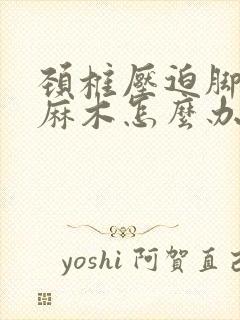 頚椎壓迫脚
麻木怎麼办
yoshi 阿賀直己